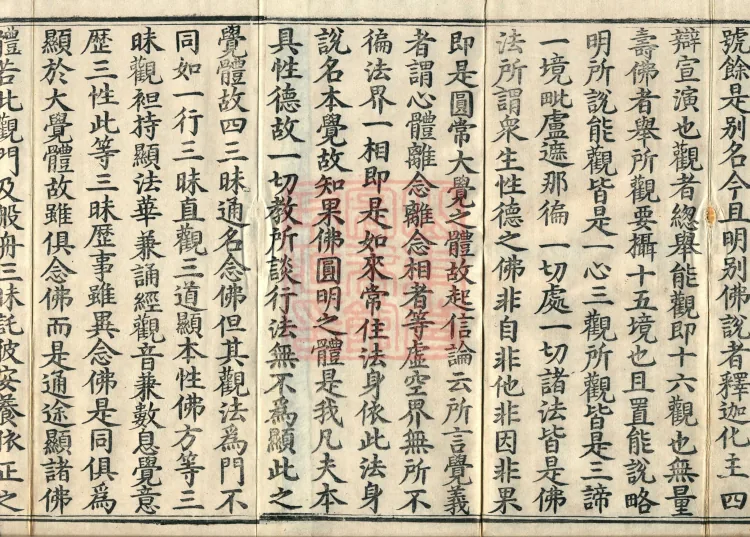 號餘是別名今且明別佛說者釋迦化主四
辯宣演也觀者緫舉能觀即十六觀也無量
壽佛者舉所觀要攝十五境也且置能說略
明所說能觀皆是一心三觀所觀皆是三諦
一境毗盧遮那徧一切處一切諸法皆是佛
法所謂衆生性德之佛非自非他非因非果
即是圓常大覺之體故起信論云所言覺義
者謂心體離念離念相者等虛空界無所不
徧法界一相即是如來常住法身依此法身
說名本覺故知果佛圓明之體是我凡夫本
具性德故一切教所談行法無不爲顯此之
覺體故四三昧通名念佛但其觀法爲門不
同如一行三昧直觀三道顯本性佛方等三
昧觀袒持顯法華兼誦經觀音兼數息覺意
歷三性此等三昧歷事雖異念佛是同俱爲
顯於大覺體故雖俱念佛而是通途顯諸佛
體若此觀門及般舟三昧託彼安養依正之